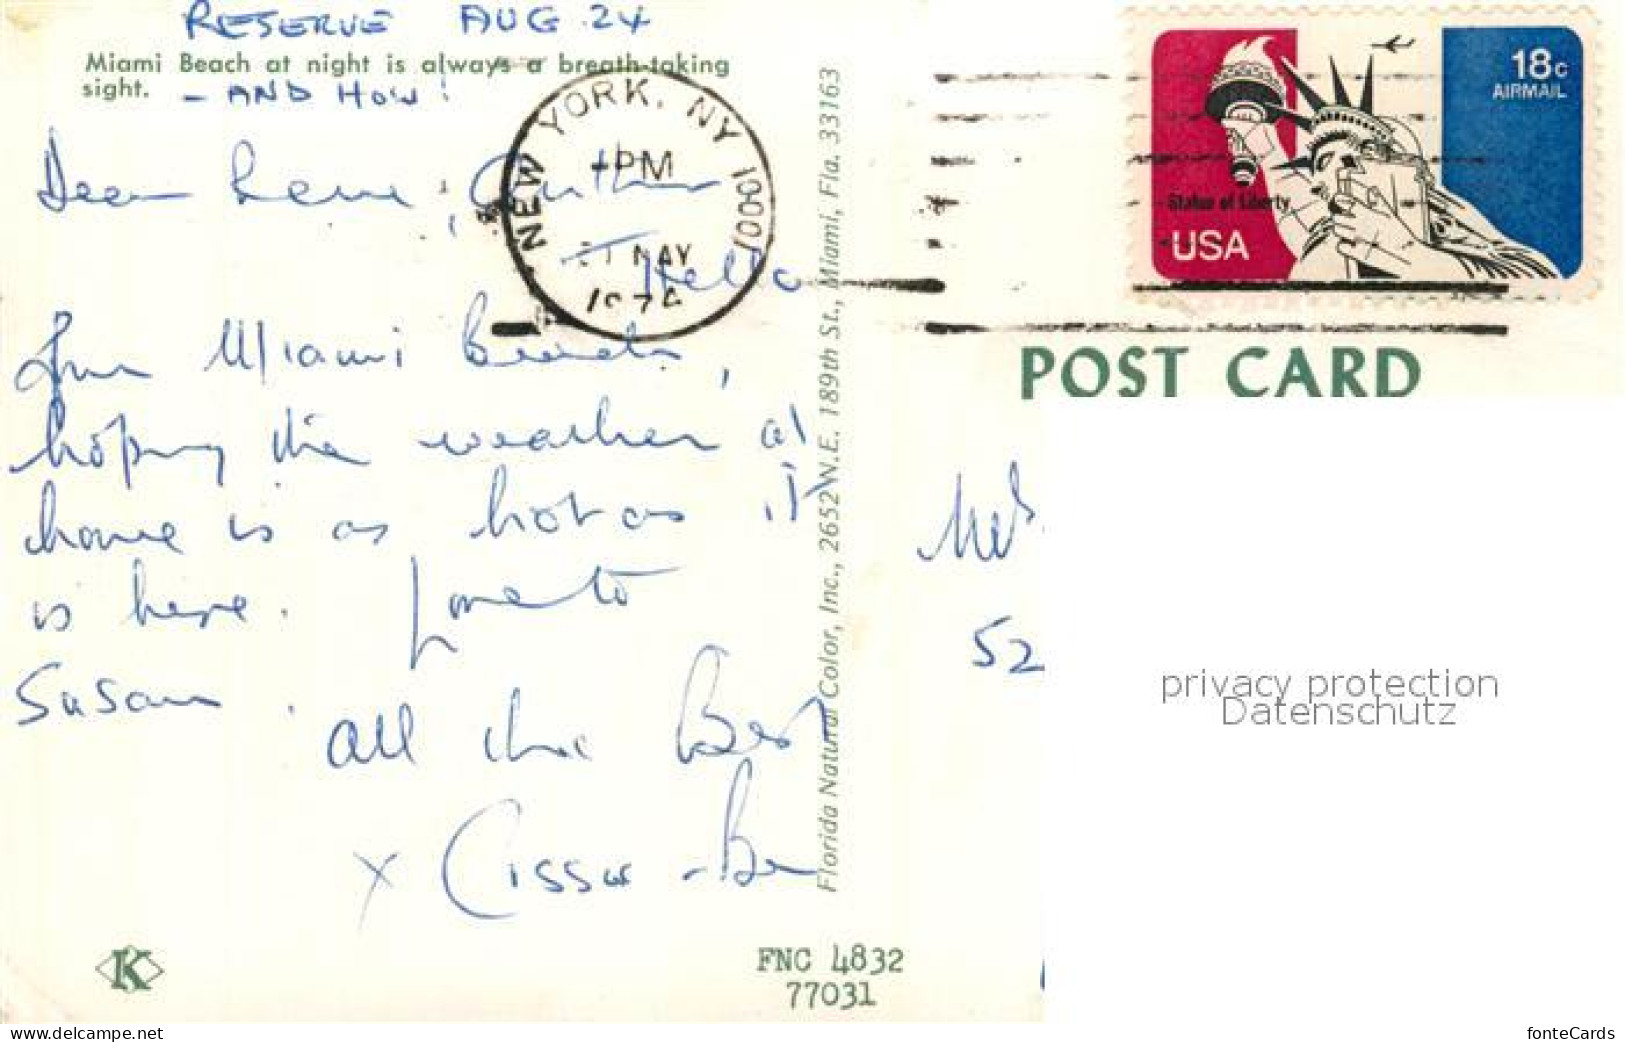 RESERVE AUG 24
Miami Beach at night is always a breath-taking
sight. - AND HOW!
Dear Rene, Arthur
Hello
from Miami Beach,
hoping the weather at
home is as hot as it
is here. Love to
Susan.
All the Best
x Cissie - Ben
K
FNC 4832
77031
Florida Natural Color, Inc., 2652 N.E. 189th St., Miami, Fla. 33163
NEW YORK, NY 10001
PM
MAY
197
18c
AIRMAIL
Statue of Liberty
USA
POST CARD
52
privacy protection
Datenschutz
www.delcampe.net
fonteCards